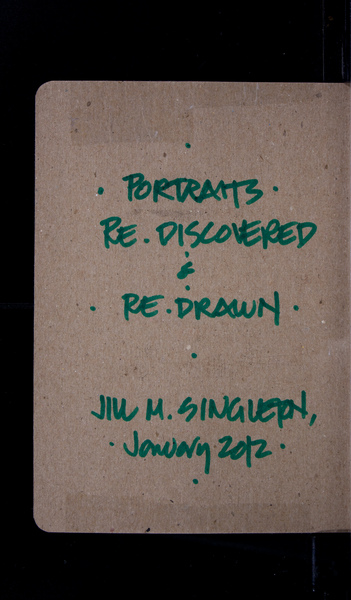 • PORTRAITS •
RE • DISCOVERED
&
• RE • DRAWN •
JILL M. SINGLETON,
• January 2012 •